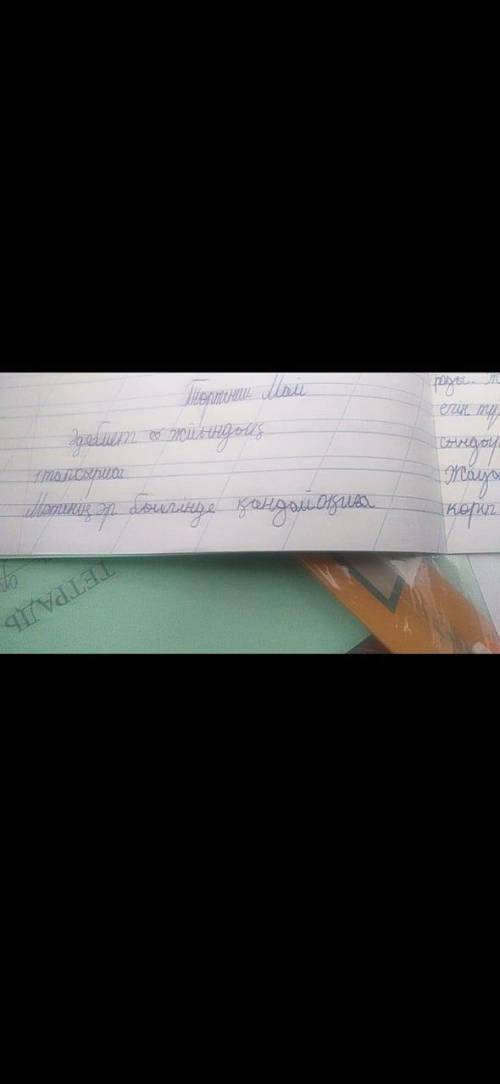 Төртінші Май
Әдебиет ∞ жиындық
1 тапсырма
Мәтіннің әр бөлігінде қандай оқиға
рады.
егін тұ
сындық
Жауа
көріп
ТЕТРАДЬ